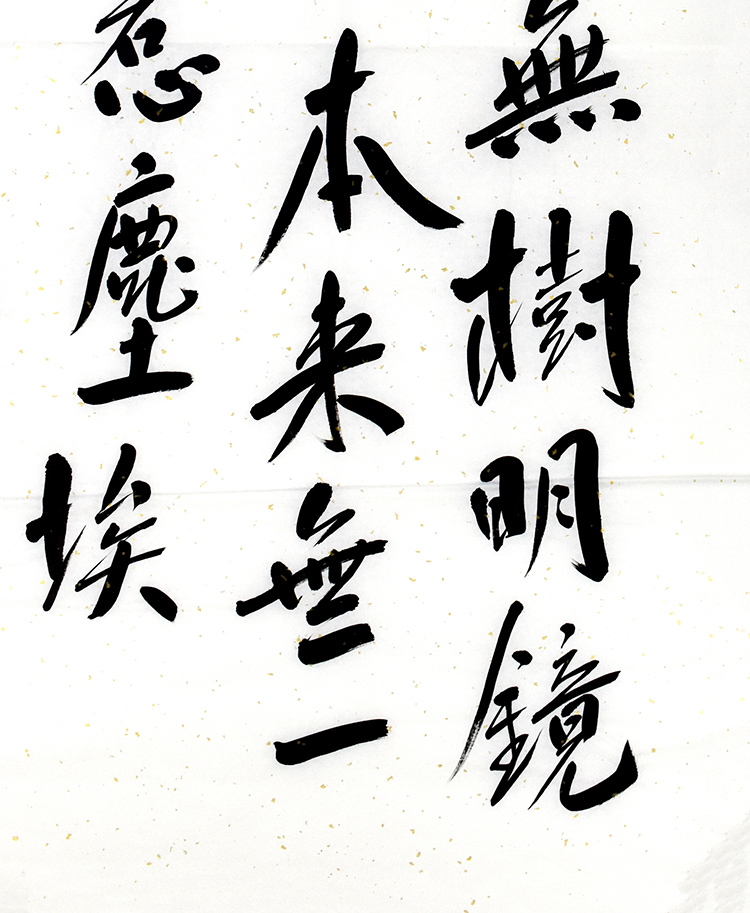 無樹明鏡
本来無一
惹塵埃